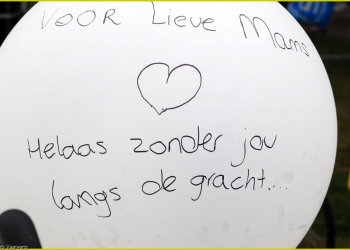 VOOR Lieve Mams
Helaas zonder jou
langs de gracht....